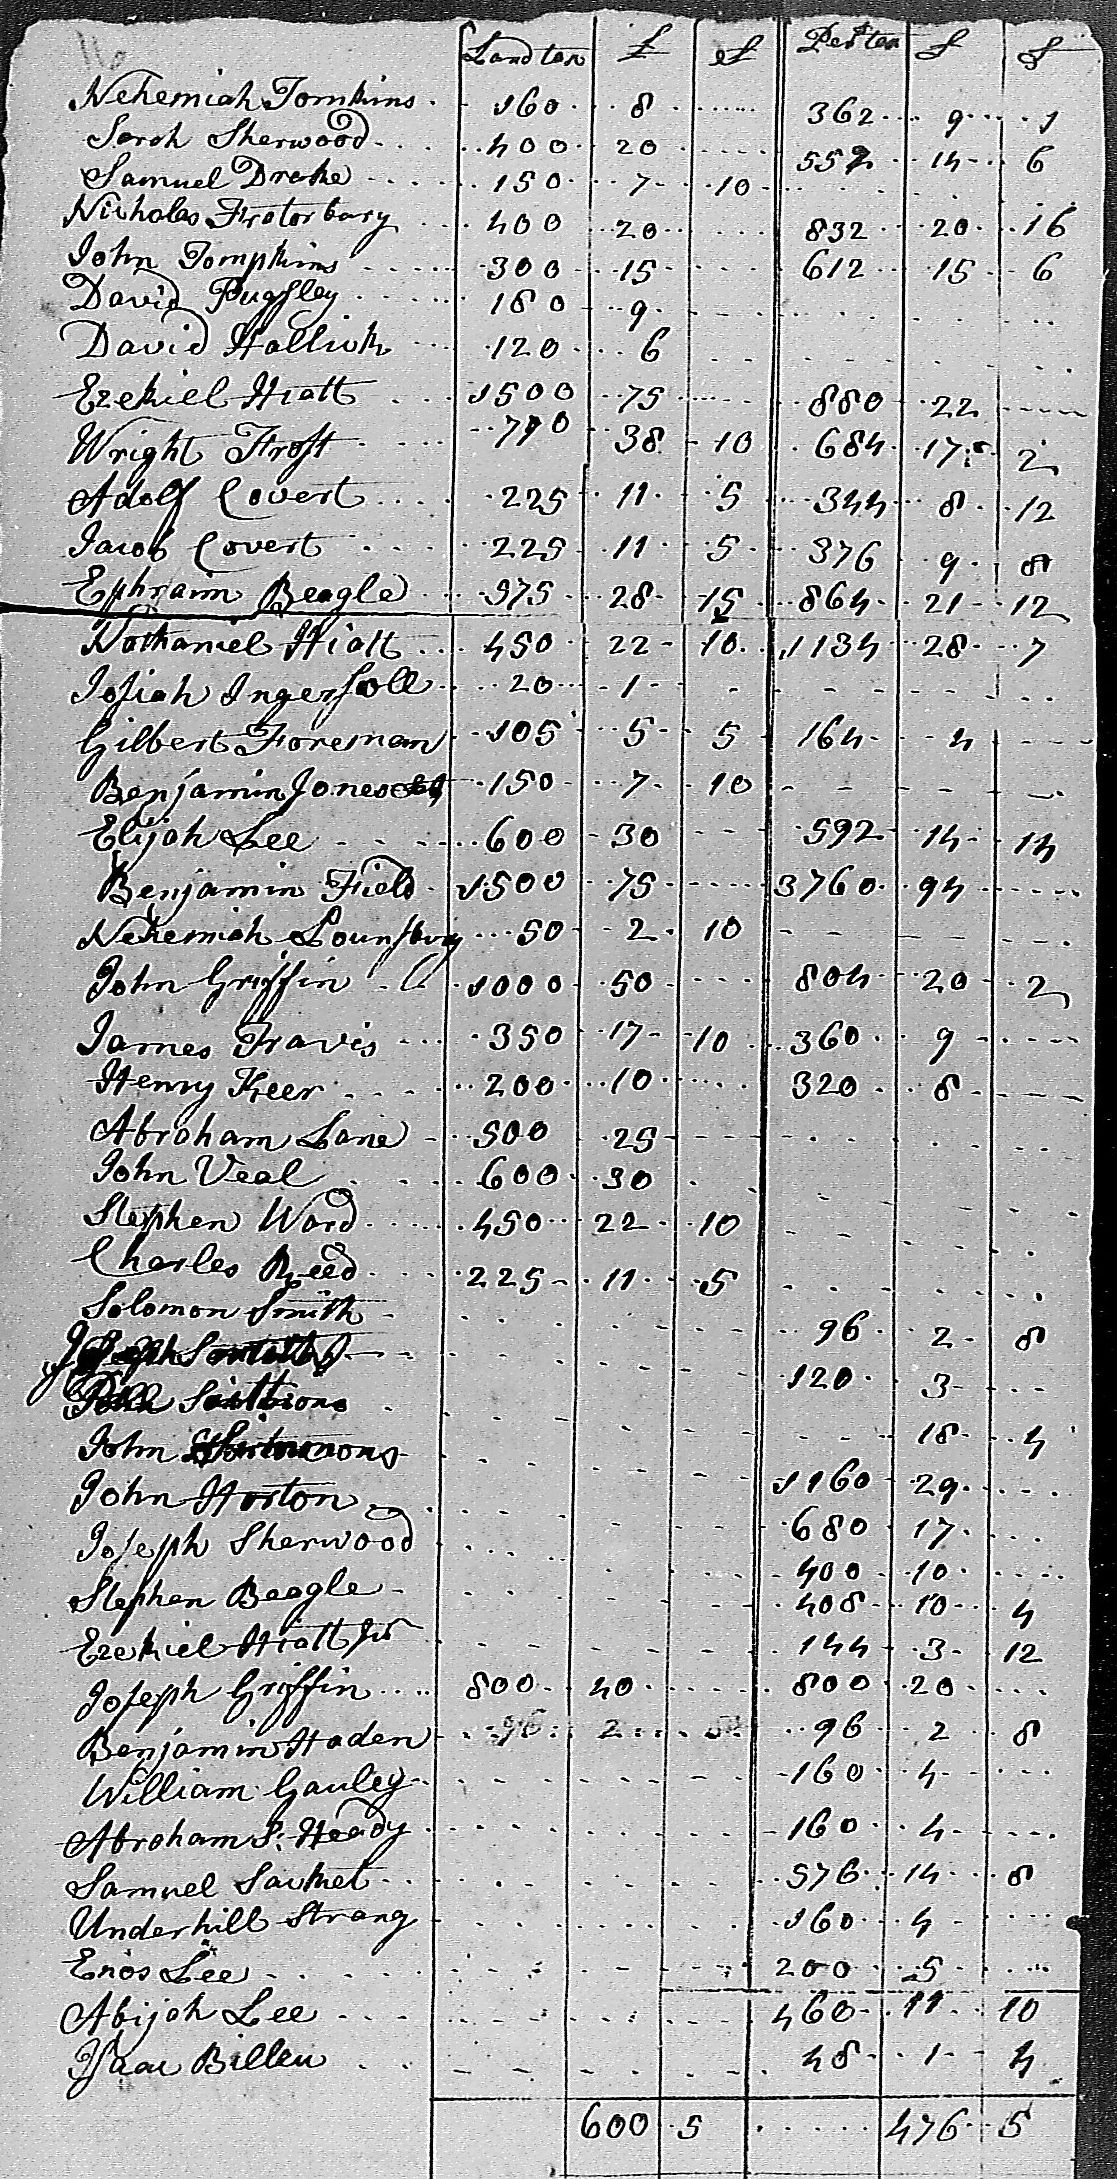 16 Land tax £ s Pers tax £ s
Nehemiah Tomkins 160 8 362 9 1
Sarah Sherwood 400 20 552 14 6
Samuel Drake 150 7 10
Nicholas Frotorbary 400 20 832 20 16
John Tompkins 300 15 612 15 6
David Pugsley 180 9
David Hallick 120 6
Ezekiel Hiatt 1500 75 880 22
Wright Frost 770 38 10 684 17 2
Adolf Covert 225 11 5 344 8 12
Jacob Covert 225 11 5 376 9 8
Ephraim Beagle 575 28 15 864 21 12
Nathaniel Hiatt 450 22 10 1134 28 7
Josiah Ingersoll 20 1
Gilbert Foreman 105 5 5 164 4
Benjamin Jones 150 7 10
Elijah Lee 600 30 592 14 14
Benjamin Field 1500 75 3760 94
Nehemiah Lounsbury 50 2 10
John Griffin 1000 50 804 20 2
James Travis 350 17 10 360 9
Henry Keer 200 10 320 8
Abraham Lane 500 25
John Veal 600 30
Stephen Ward 450 22 10
Charles Reed 225 11 5
Solomon Smith 96 2 8
120 3
John 18 4
John Horton 1160 29
Joseph Sherwood 680 17
400 10
Stephen Beagle 408 10 4
Ezekiel Hiatt Jur 144 3 12
Joseph Griffin 800 40 800 20
Benjamin Haden 96 2 8 96 2 8
William Gauley 160 4
Abraham S. Heady 160 4
Samuel Sacket 576 14 8
Underhill Strang 160 4
Enos Lee 200 5
Abijah Lee 460 11 10
Isaac Billeu 48 1 4
600 5 476 5